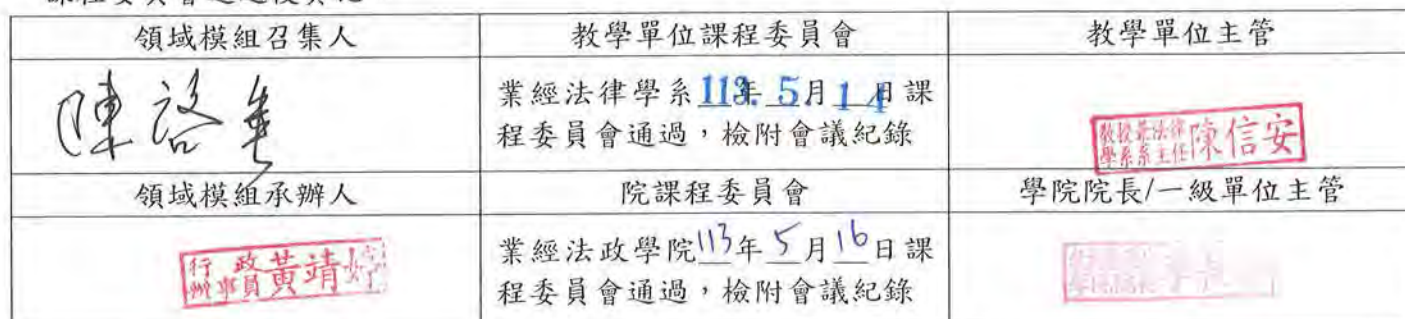 領域模組召集人
教學單位課程委員會
教學單位主管
業經法律學系113年5月14日課
程委員會通過，檢附會議紀錄
教授兼法律
學系系主任 陳信安
領域模組承辦人
院課程委員會
學院院長/一級單位主管
行政
辦事員 黃靖
業經法政學院113年5月16日課
程委員會通過，檢附會議紀錄